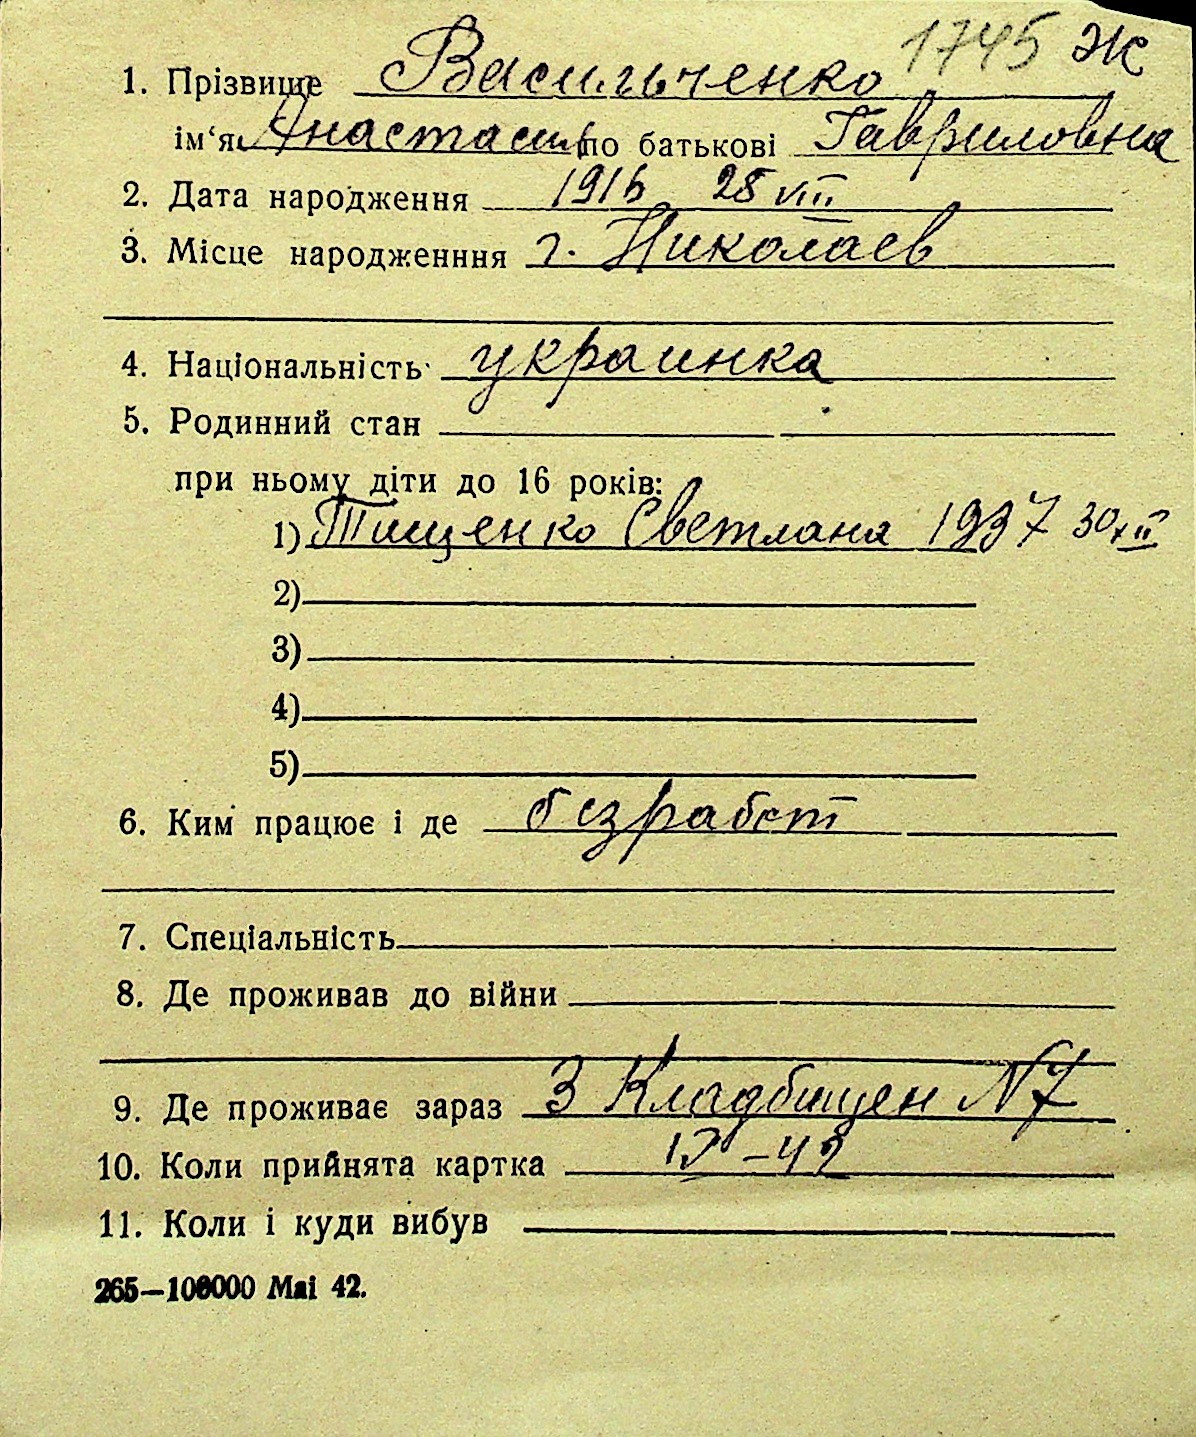 1745 Ж
1. Прізвище Васильченко
ім‘я Анастасия по батькові Гавриловна
2. Дата народження 1916 28 VIII
3. Місце народженння г. Николаев
4. Національність украинка
5. Родинний стан
при ньому діти до 16 років:
1) Тищенко Светлана 1937 30
2)
3)
4)
5)
6. Ким працює і де безработ
7. Спеціальність
8. Де проживав до війни
9. Де проживає зараз 3 Кладбищен N 7
10. Коли прийнята картка IX – 42
11. Коли і куди вибув
265—100000 Mai 42.